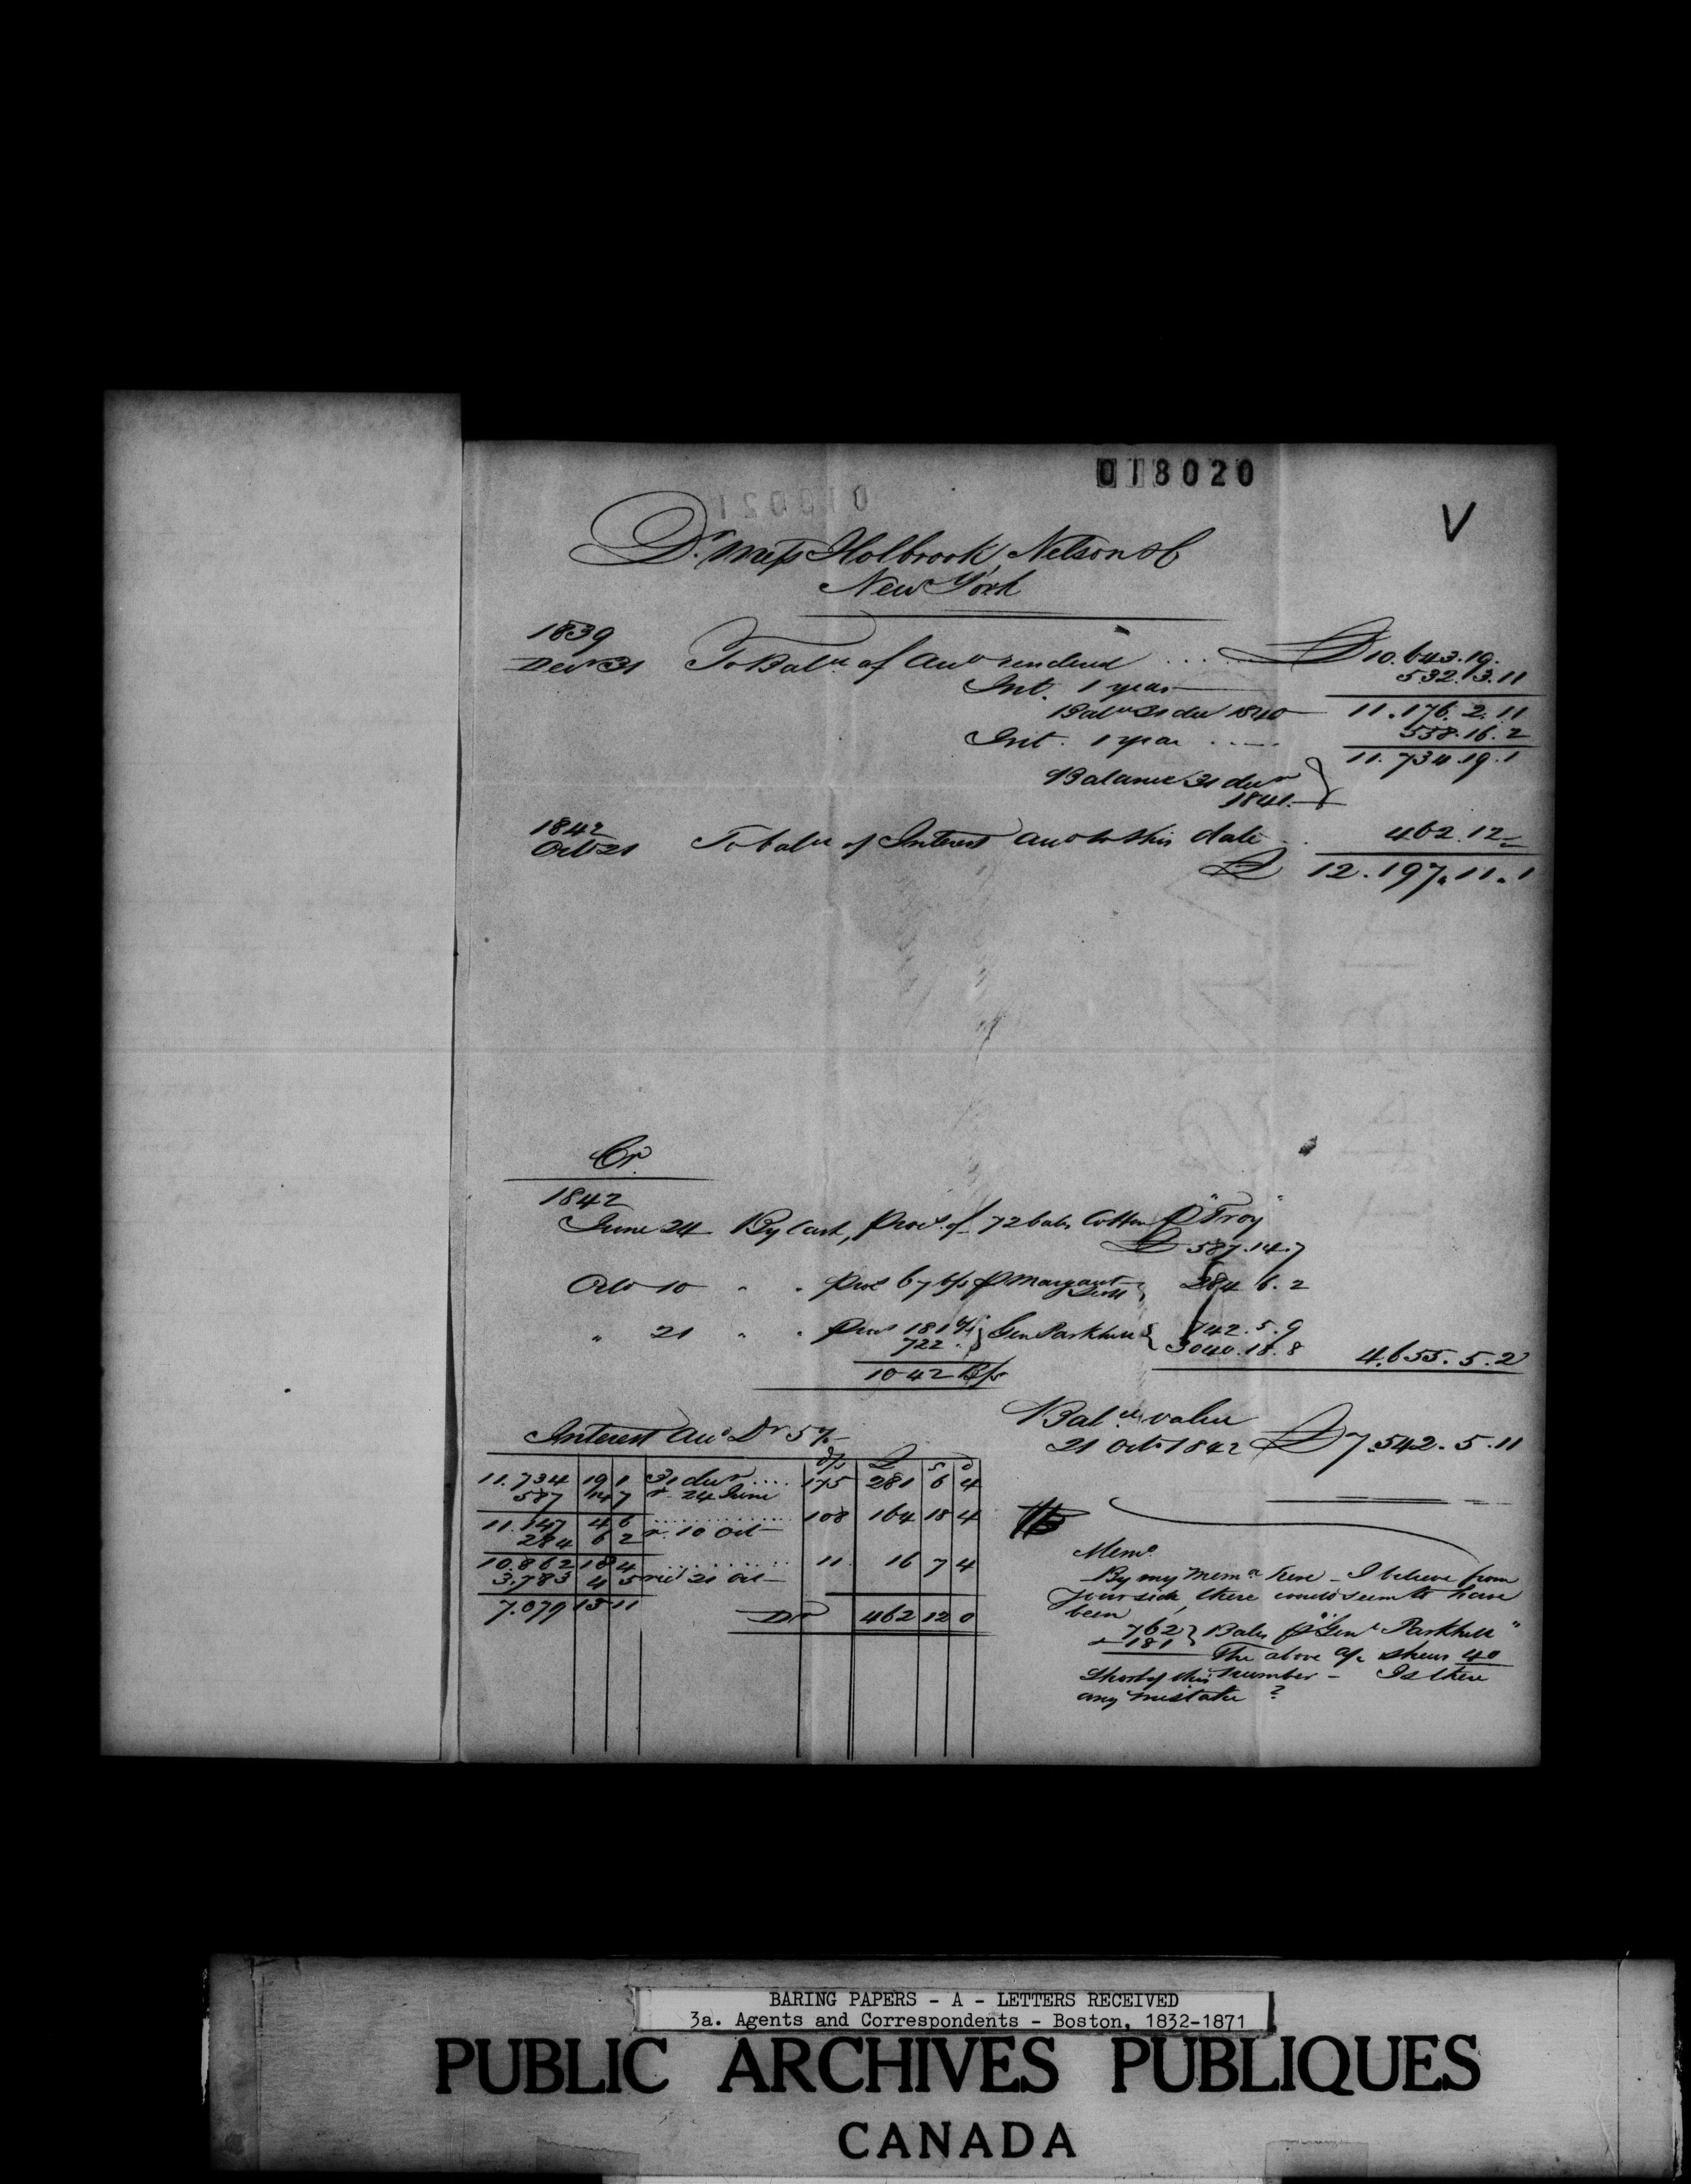 018020
V
Dr. Mess Holbrook, Nelson & Co
New York
1839
Decr 31 To Balce of Acct rendered .... £ 10.643.19.
Int. 1 year 532.13.11
Balce 31 dec 1840 11.176.2.11
Int. 1 year .... 558.16.2
11.734.19.1
Balance 31 decr
1841
1842
Octo 21 To balce of Interest Acct to this date .. 462.12.
£ 12.197.11.1
Cr.
1842
June 24 By Cash, Proc. of 72 bales Cotton p "Troy"
£ 587.14.7
Octo 10 " " Proc 67 b/s p Margaret Scott 284.6.2
" 21 " " Proc 181 Gen Parkhill 742.5.9
722 3040.18.8 4.655.5.2
1042 B/s
Balce value
21 Octo 1842 £ 7.542.5.11
Interest Acct Dr 5%
d/s £ s d
11.734 19 1 31 decr .... 175 281 6 4
587 14 7 24 June
11.147 4 6 .... 108 164 18 4
284 6 2 10 Oct
10.862 18 4 .... 11 16 7 4
3.783 4 5 21 Oct
7.079 13 11 Dr 462 12 0
Memo.
By my Memo here - I believe from
your side, there would seem to have
been
762 } Bales p "Genl Parkhill"
& 181 } The above a/c shews 40
short of this number - Is there
any mistake ?
BARING PAPERS - A - LETTERS RECEIVED
3a. Agents and Correspondents - Boston, 1832-1871
PUBLIC ARCHIVES PUBLIQUES
CANADA